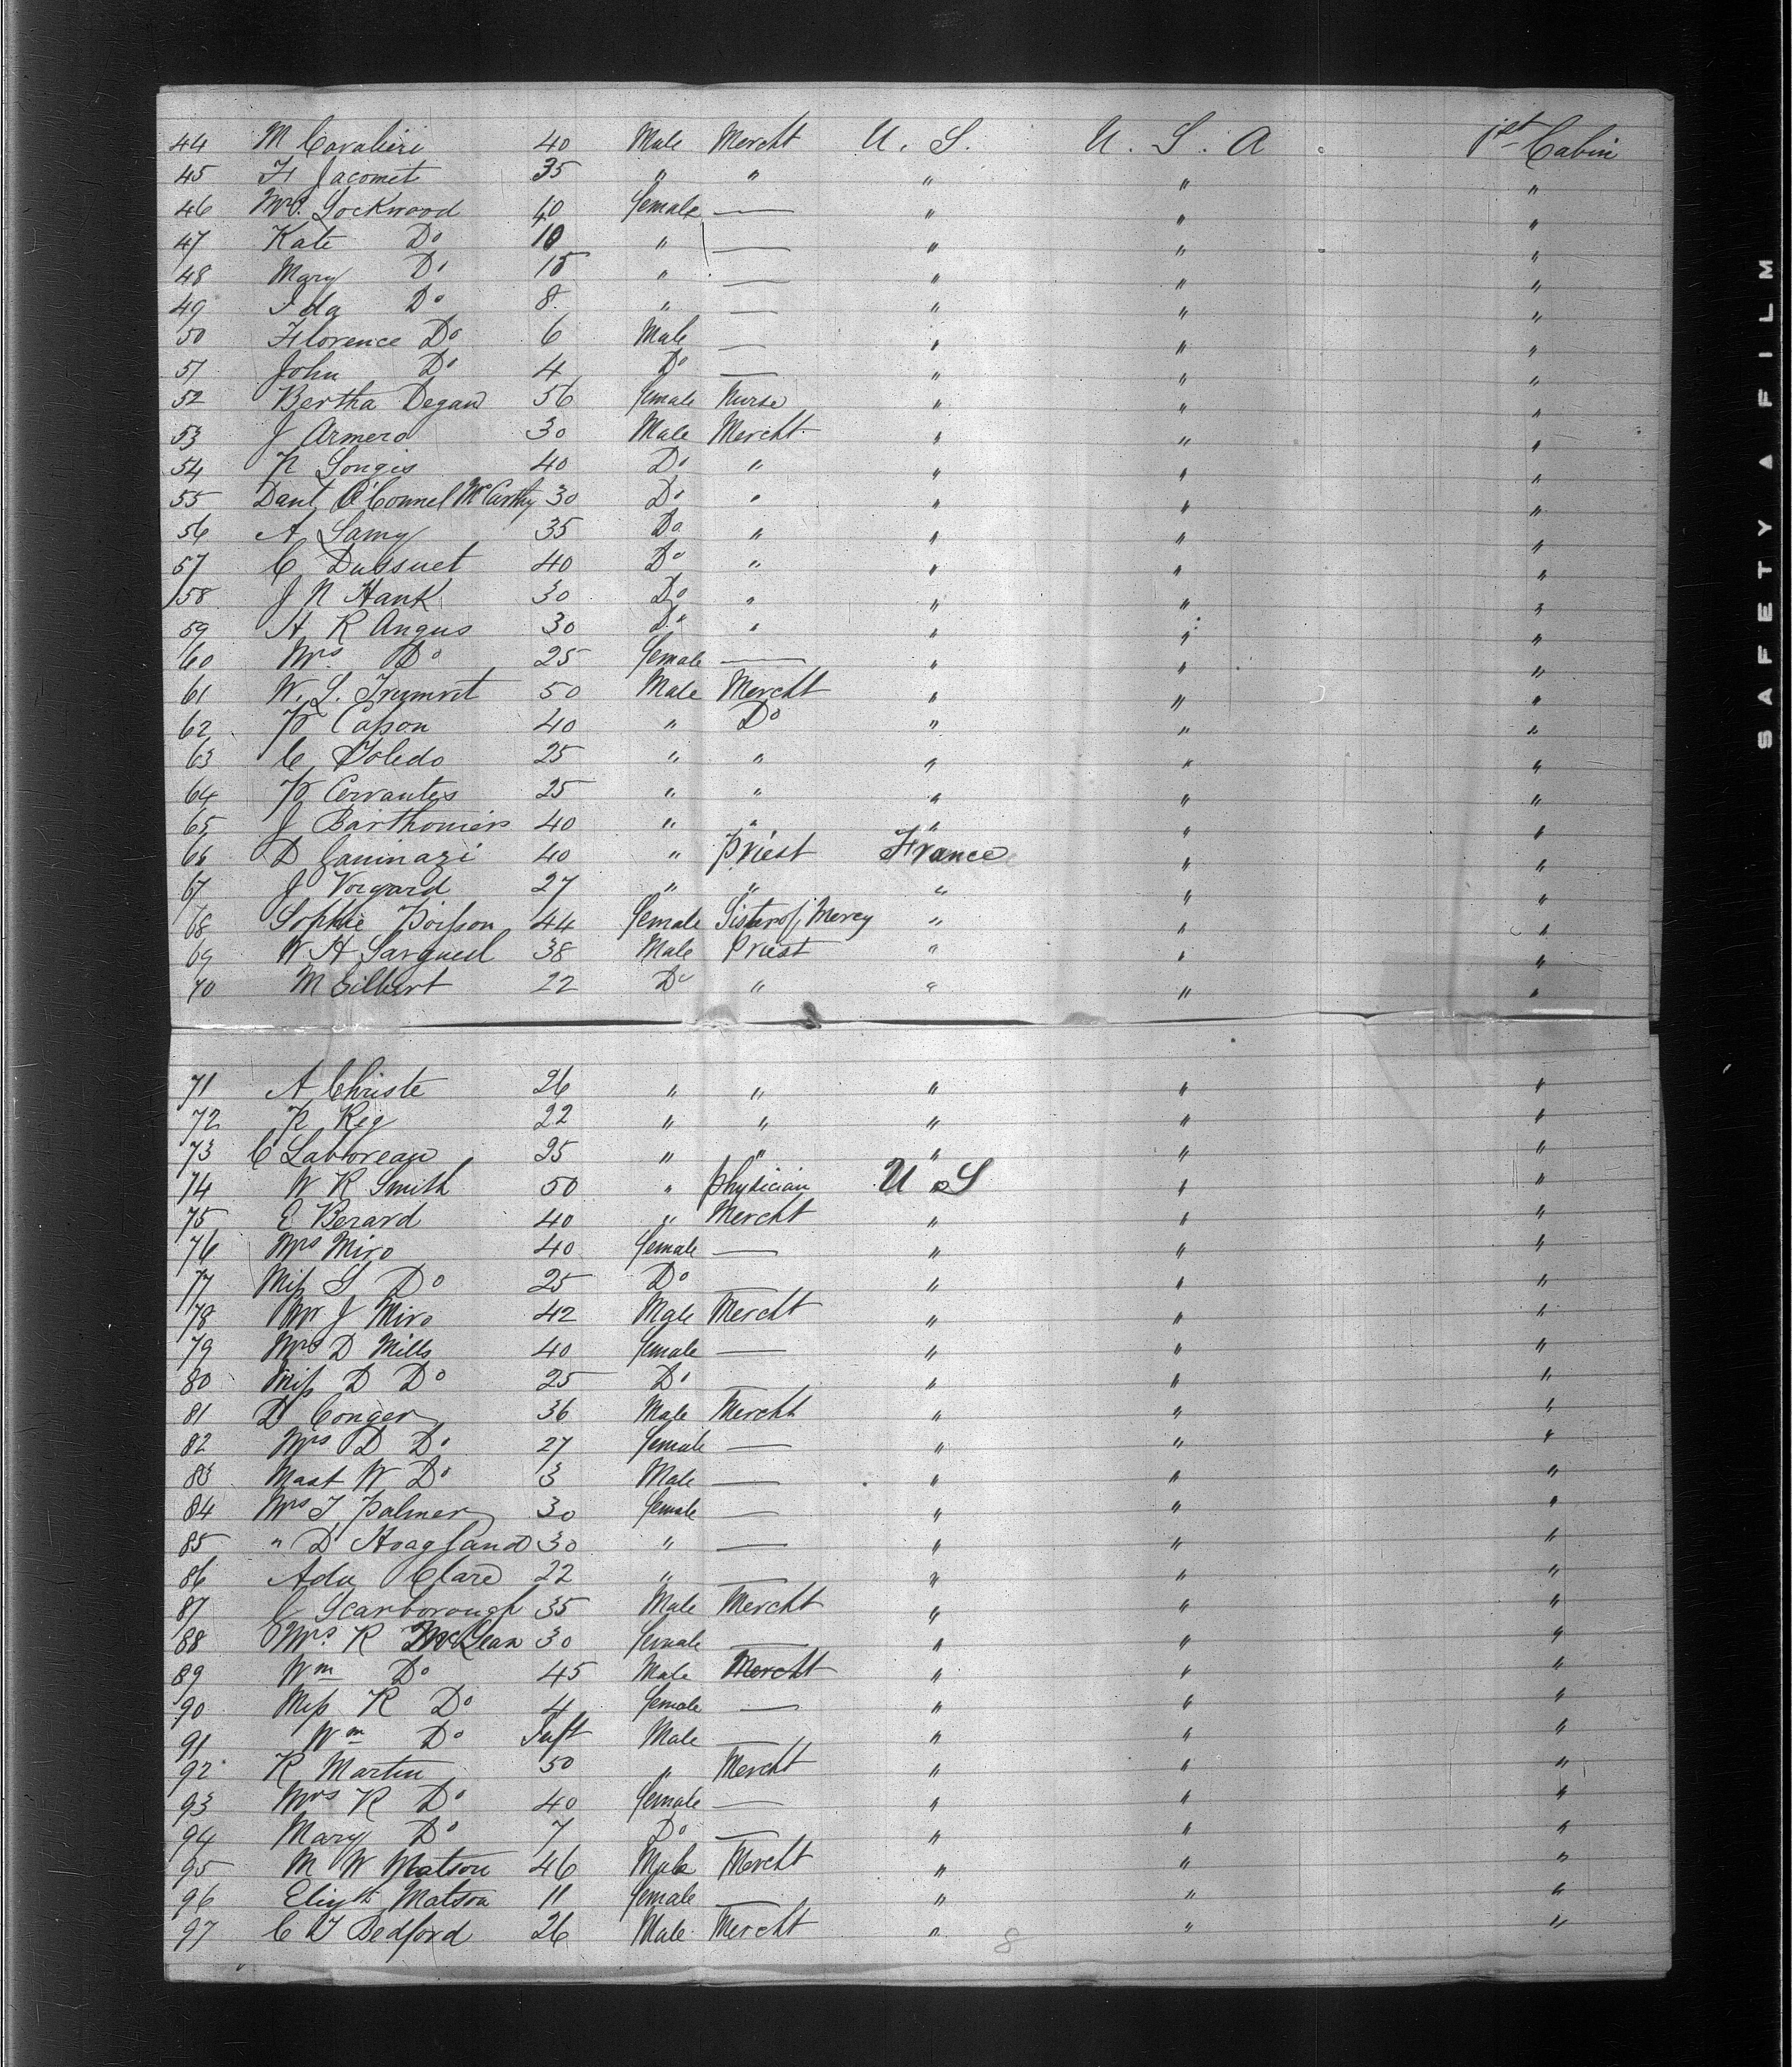 44 M Cavalieri 40 Male Mercht U. S. U. S. A 1st Cabin
45 H Jacomet 35 " " " " "
46 Mrs. Lockwood 40 female — " " "
47 Kate Do 10 " — " " "
48 Mary Do 15 " — " " "
49 Ida Do 8 " — " " "
50 Florence Do 6 Male — " " "
51 John Do 4 Do — " " "
52 Bertha Degan 56 female Nurse " " "
53 J Armero 30 Male Mercht " " "
54 N Longis 40 Do " " " "
55 Danl O'Connel McCarthy 30 Do " " " "
56 A Lamy 35 Do " " " "
57 C Dussuet 40 Do " " " "
58 J N Hank 30 Do " " " "
59 H R Angus 30 Do " " " "
60 Mrs Do 25 female — " " "
61 W. L. 50 Male Mercht " " "
62 Capon 40 " Do " " "
63 C Toledo 25 " " " " "
64 Cervantes 25 " " " " "
65 J 40 " " " " "
66 D 40 " Priest France " "
67 J Vorgard 27 " " " " "
68 Sophie Poisson 44 female Sister of Mercy " " "
69 W H 38 Male Priest " " "
70 M Gilbert 22 Do " " " "
71 A Christe 26 " " " " "
72 P Rey 22 " " " " "
73 C Laboreau 25 " " " " "
74 W R Smith 50 " physician U S " "
75 E Berard 40 " Mercht " " "
76 Mrs Miro 40 female — " " "
77 Miss S Do 25 Do — " " "
78 Mr J Miro 42 Male Mercht " " "
79 Mrs D Mills 40 female — " " "
80 Miss D Do 25 Do — " " "
81 D Conger 36 Male Mercht " " "
82 Mrs D Do 27 female — " " "
83 Mast W Do 3 Male — " " "
84 Mrs T Palmer 30 female — " " "
85 " D Hoagland 30 " — " " "
86 Ada Clare 22 " — " " "
87 C Scarborough 35 Male Mercht " " "
88 Mrs. R McLean 30 female — " " "
89 Wm Do 45 Male Mercht " " "
90 Miss R Do 4 female — " " "
91 Wm Do Inft Male — " " "
92 R Martin 50 " Mercht " " "
93 Mrs R Do 40 female — " " "
94 Mary Do 7 Do — " " "
95 M W Matson 46 Male Mercht " " "
96 Elizth Matson 11 female — " " "
97 C T Bedford 26 Male Mercht " " "
8
SAFETY A FILM